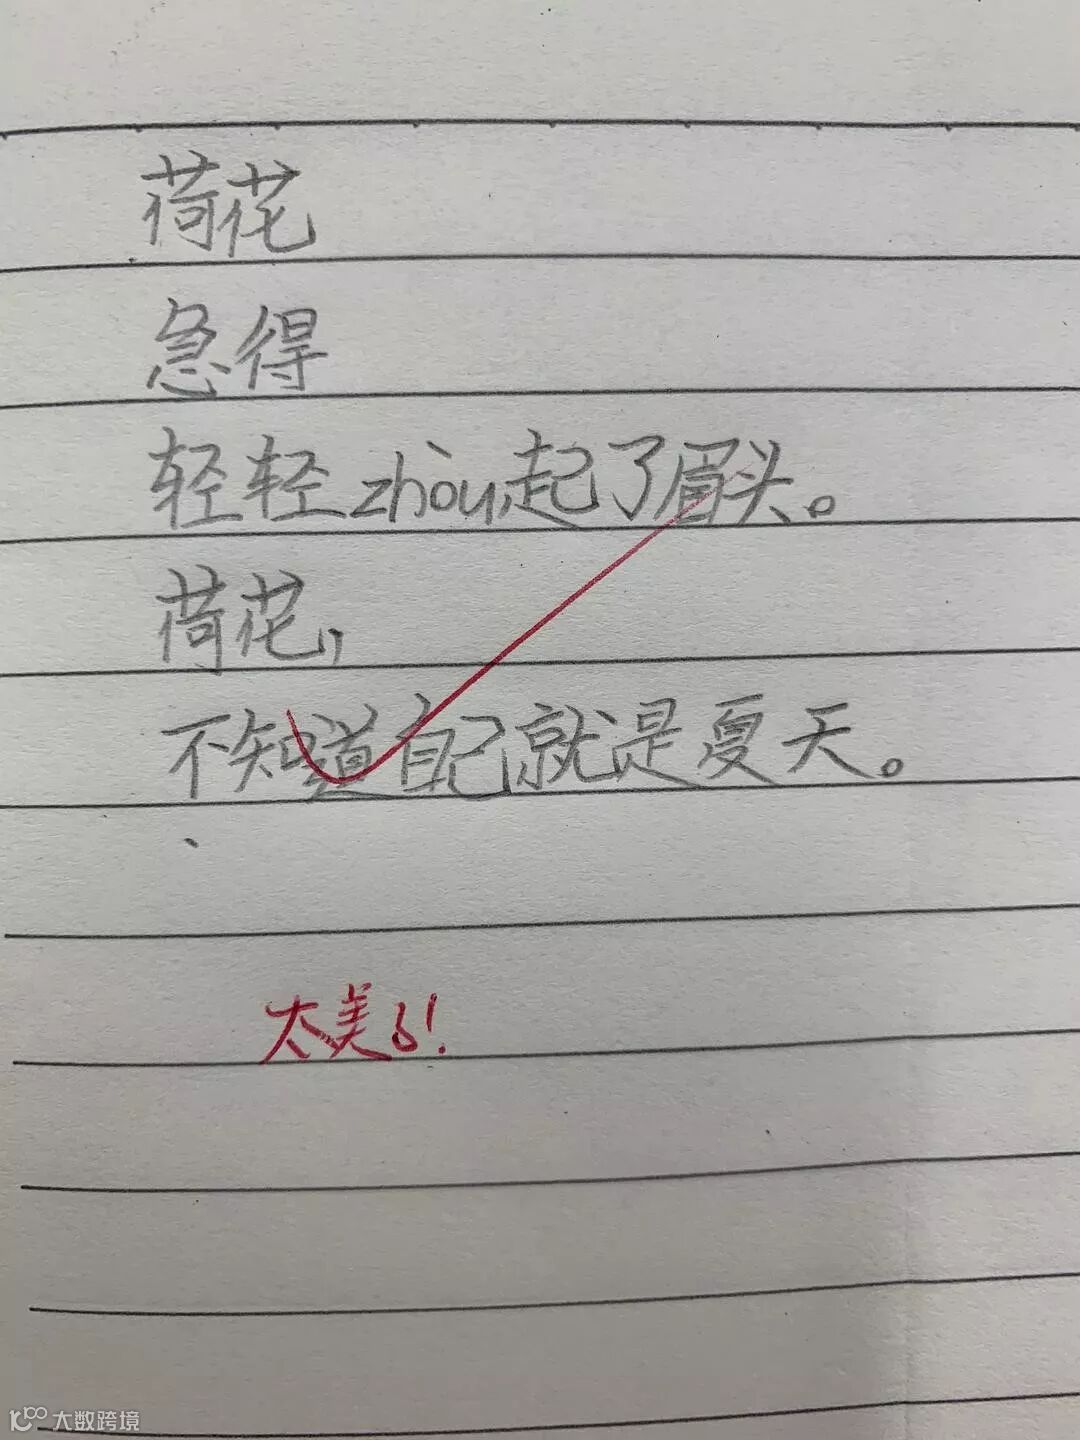 荷花
急得
轻轻zhòu起了眉头。
荷花,
不知道自己就是夏天。
太美了!
大数跨境